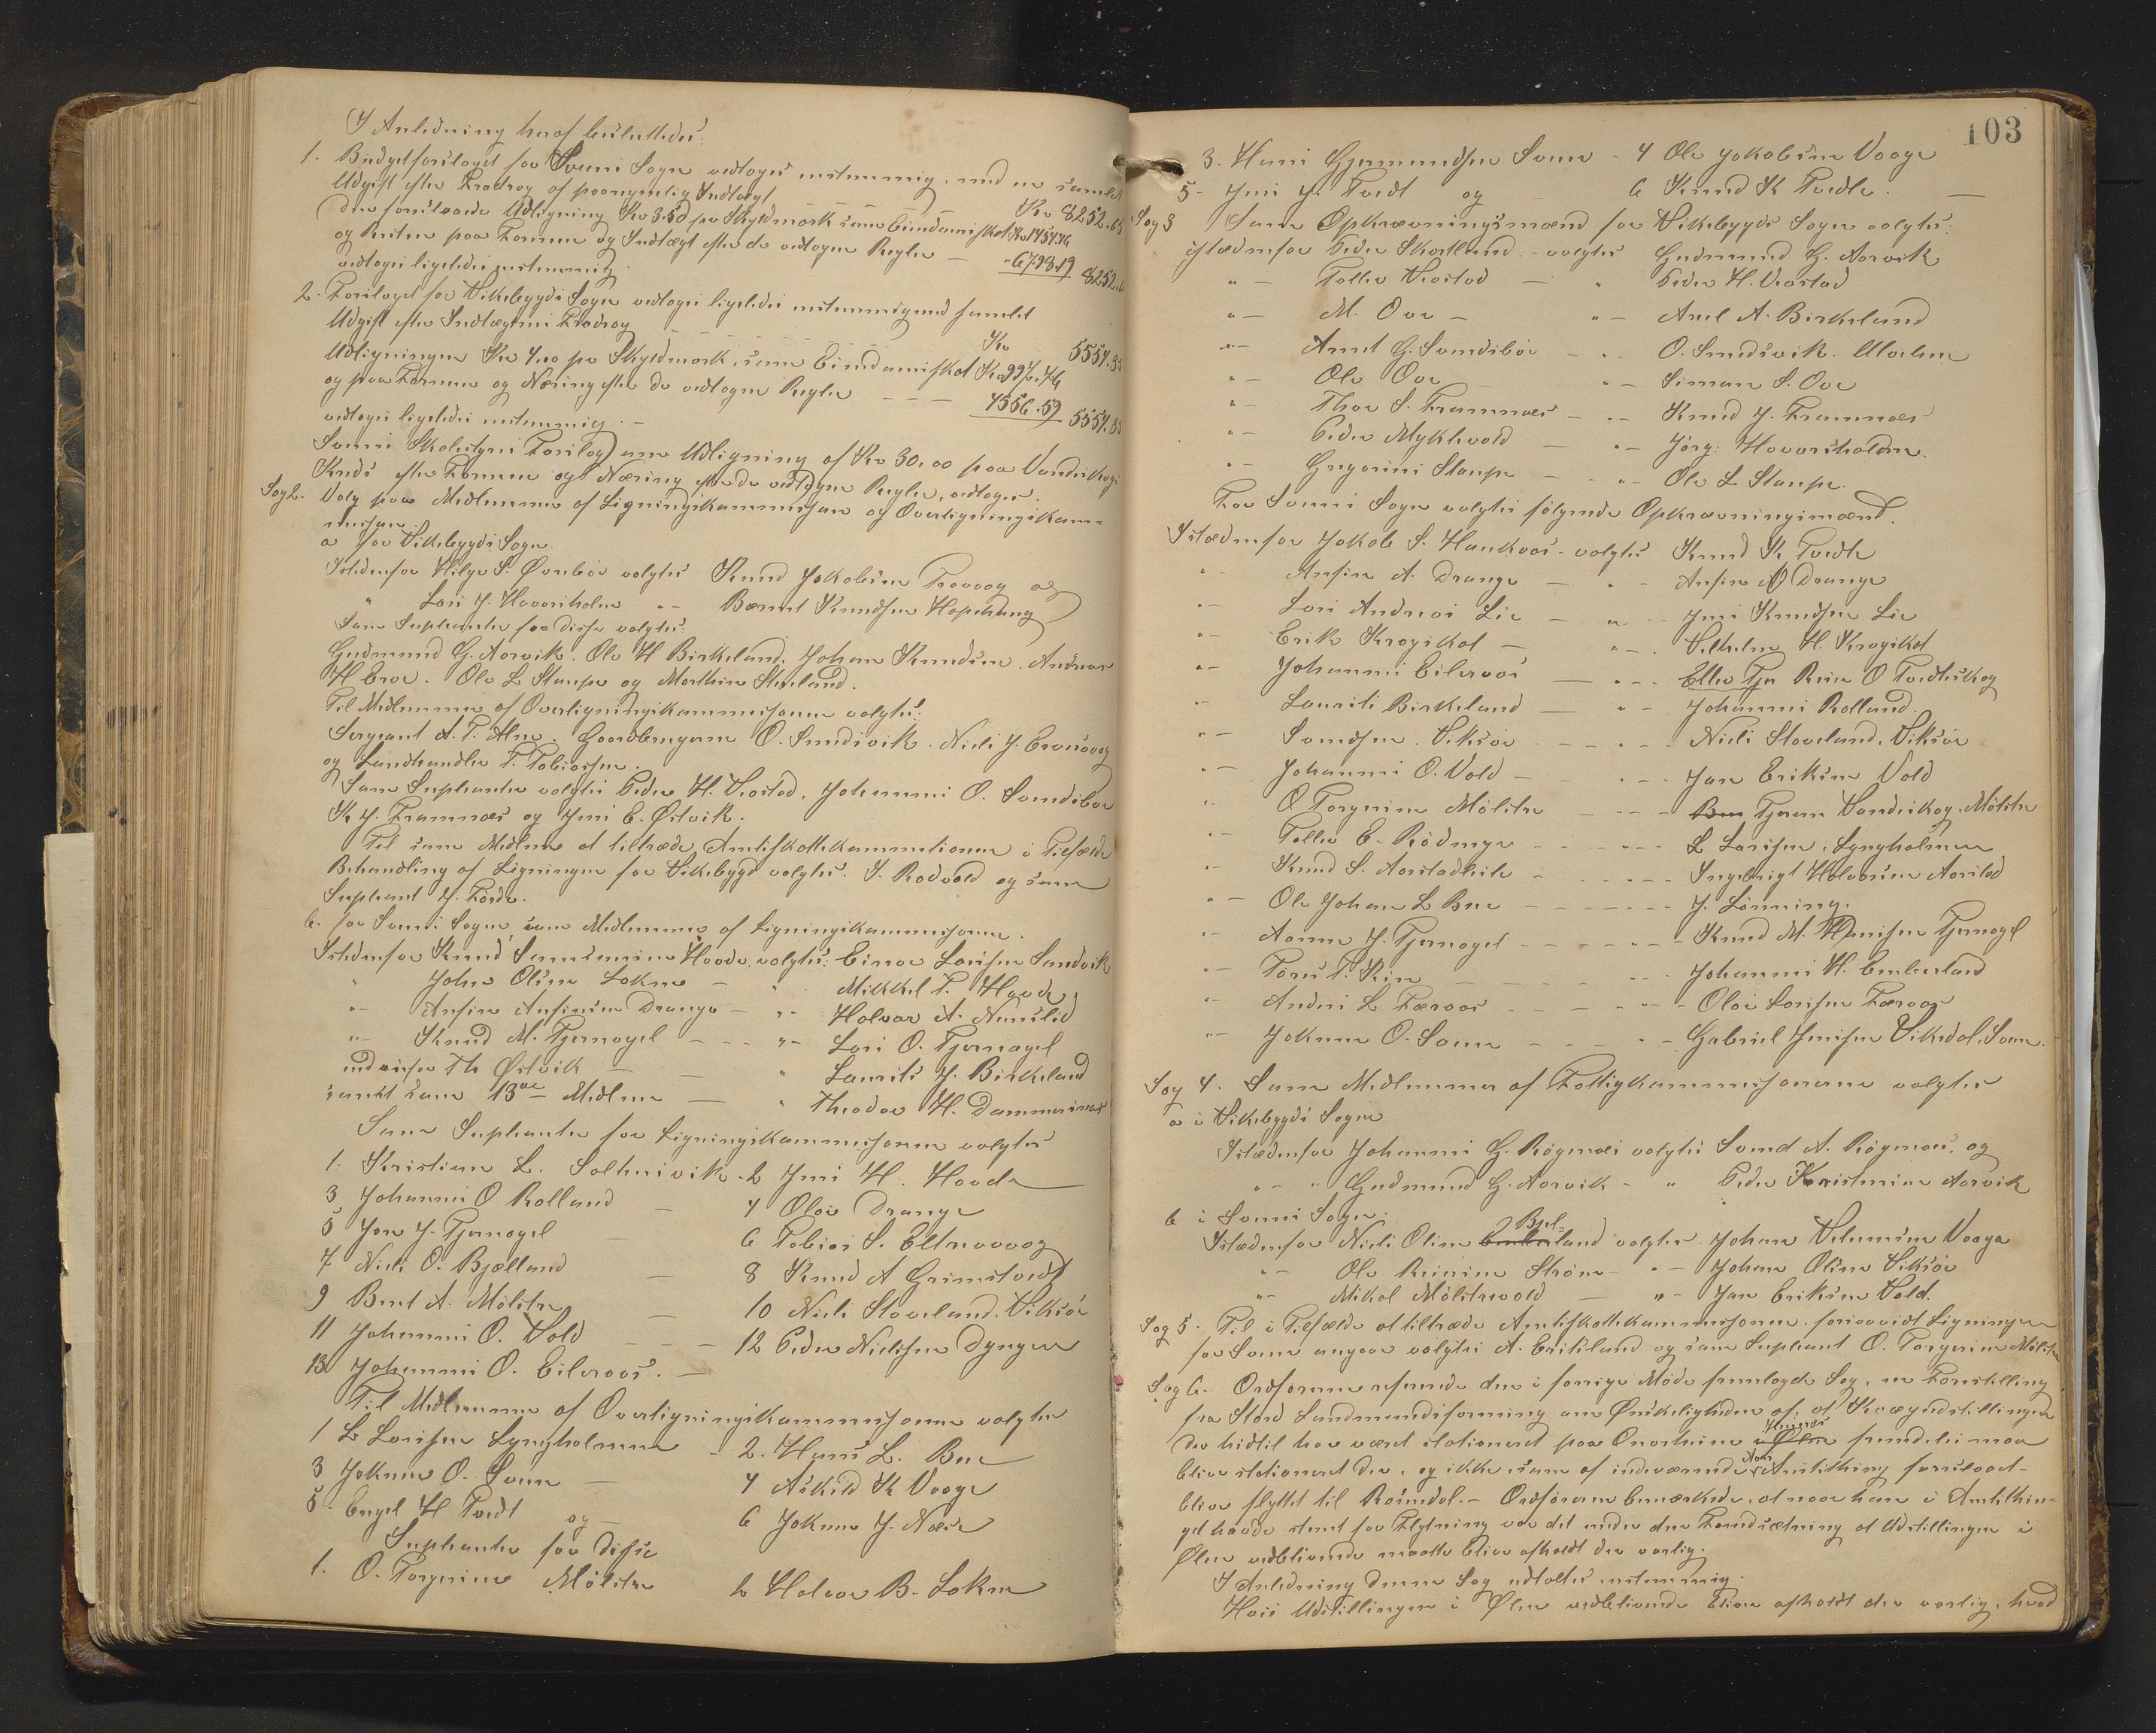 I Anledning heraf besluttedes:
1. Budgetforslaget for Sveens Sogn vedtoges enstemmig, med en samlet
Udgift efter Fradrag af paaregnelig Indtægt Kr 8252.65
den foreslaaede Udligning Kr 3.50 pr Skyldmark som Eiendomsskat Kr 1454.46
og Resten paa Formue og Indtægt efter de vedtagne Regler — " 6798.19 8252.6
vedtoges ligeledes enstemmig.
2. Forslaget for Vikebygds Sogn vedtoges ligeledes enstemmig med samlet
Udgift efter Indtægternes Fradrag Kr 5554.35
Udligningen Kr 4.00 pr Skyldmark, som Eiendomsskat Kr 997.76
og paa Formue og Næring efter de vedtagne Regler — — — 4556.59 5554.35
vedtoges ligeledes enstemmig. —
Sveens Skolestyres Forslag om Udligning af Kr 30.00 paa Vandviksgs
Kreds efter Formue og Næring efter de vedtagne Regler, vedtoges.
Sag 2. Valg paa Medlemmer af Ligningskommissjon og Overligningskom-
missjon.
a for Vikebygds Sogn.
Istedenfor Helge S. Øvrebø valgtes Knud Jakobsen Traavaag og
" Lars J. Havorsholm " — Bernt Knudsen Hapehaug
Som Suplianter for disse valgtes:
Gudmund G. Aarvik. Ole H Birkeland, Johan Knudsen. Andreas
H Eroe. Ole L Staupe og Marthin Stueland.
Til Medlemmer af Overligningskommissjonen valgtes:
Sergeant A. T. Alne. Gaardbrugerne O. Sundsvik. Niels J. Eroesvaag
og Landhandler T. Tobiassen.
Som Suplianter valgtes Peder H. Vestad, Johannes O. Svendsbøe
K J. Framnæs og Jens E. Østvik.
Til som Medlem at tiltræde Amtsskattekommitionen i Tilfælde
Behandling af Ligningen for Vikebygd valgtes. S. Rødvold og som
Supliant J. Førde.
b. for Sveens Sogn, som Medlemmer af Ligningskommissjonen.
Istedenfor Knud Samsonsen Hovde, valgtes: Einar Larsen Sandvik
" John Olsen Lokne — " Mikkel T. Hovde,
" — Ansin Ansinsen Drange — " — Halvar A. Nemslid
" — Knud M. Tjernagel — — — " — Lars O. Tjernagel
endvisere Th Østvik — — " Laurits J. Birkeland
samt som 13de Medlem — " Theodor H. Dammersnæs
Som Suplianter for Ligningskommissjonen valgtes
1. Kristian L. Saltnesvik — 2 Jens H. Hovde
3 Johannes O Rolland — 4 Olai Drange
5 Jon J. Tjernagel — 6 Tobias S. Eltravaag
7 Niels O. Bjælland — 8 Knud A Grimstvedt
9 Bent A. Mölstre — 10 Niels Staveland. Viksøe
11 Johannes O. Vold — — 12 Peder Nielsen Dyngen
13 Johannes O. Eileraas. —
Til Medlemmer af Overligningskommissjonen valgtes
1 L Larsen Lyngholmen — 2. Hans L. Bue
3 Jokum O. Sveen — 4 Askild K Vaage
5. Engel H Tvedt og — 6 Jokum J. Næse
Suplianter for disse
1. O. Torgersen Mölstre 2 Halvor B. Lokne
103
3. Hans Gjermundsen Sveen — 4 Ole Jakobsen Vaage
5 — Jens J. Tvedt og 6 Knud K Tvedte. —
Sag 3 Som Opkrævningsmænd for Vikebygds Sogn valgtes:
istedenfor Peder Skartland — valgtes Gudmund G. Aarvik
" — Tollev Vestad — " Peder H. Vestad
" — M. Ove — " — Axel A. Birkeland
" — Amt G. Svendsbøe — " — O. Sundsvik. Utvalen
" — Ole Ove — " — Simon S. Ove
" — Thor S. Framnæs — " — Knud J. Framnæs
" — Peder Mykevold — " — Jørg: Havorsholm.
" — Gregorius Staupe — " — Ole L Staupe.
For Sveens Sogn valgtes følgende Opkrævningsmænd.
Istedenfor Jakob S. Haukaas — valgtes Knud K Tvedte
" — Ansin A. Drange — " — Ansin A Drange
" — Lars Andreas Lie — " — Jens Knudsen Lie
" — Erik Krogskat — " — Vilhelm H. Krogskat
" — Johannes Eileraas — " — Ellev Tjer Rein O Tvedteskog
" — Laurits Birkeland — " — Johannes Rolland.
" — Svendsen. Viksøe — " — Niels Staveland, Viksøe
" — Johannes O. Vold — " — Jon Eriksen Vold
" — O Torgersen Mölstre — " — Ben Tjeran Vandvikog. Mölstre
" — Tollev E. Rødmyr — " — L Larsen, Lyngholmen
" — Knud S. Aarstadlid — " — Ingebrigt Halvorsen Aarstad
" — Ole Johan L Bue — " — J. Lønning.
" — Aamun J. Tjernagel — " — Knud M. Monsen Tjernagel
" — Tores T. Rin — " — Johannes H. Emberland
" — Anders L Færaas — " — Olai Larsen Færaas
" — Jokum O. Sveen — " — Gabriel Jensen Vikedal. Sveen.
Sag 4. Som Medlemmer af Fattigkommissjonerne valgtes
a i Vikebygds Sogn
Istedenfor Johannes G. Røgenæs valgtes Svend A. Røgenæs, og
" — " Gudmund G. Aarvik — " Peder Kristensen Aarvik
b i Sveens Sogn:
Istedenfor Niels Olsen Emberland Bjel- valgtes Johan Velomsen Vaage
" — Ole Reinsen Strøm — " — Johan Olsen Viksøe
" — Mikal Mölstrevold — " — Jon Eriksen Vold.
Sag 5. Til i Tilfælde at tiltræde Amtsskattekommissjonen, forsaavidt Ligningen
for Sveen angaar valgtes A. Eritsland og som Supliant O. Torgersen Mölstre
Sag 6. Ordføreren refererede den i forrige Møde fremlagde Sag, en Forestilling
fra Stord Landmandsforening om Ønskeligheden af, at Kvægudstillingen
der hidtil har været stationeret paa Onarheim i Ølen Heraas fremdeles maa
blive stationeret der, og ikke, som af indeværende Aars Amtsthing foreslaaet —
blive flyttet til Rosendal. — Ordføreren bemærkede, at naar han i Amtsthin-
get havde stemt for Flytning var det under den Forudsætning at Udstillingen i
Ølen vedblivende maatte blive afholdt der aarlig.
I Anledning denne Sag udtaltes enstemmig.
Hvis Udstillingen i Ølen vedblivende bliver afholdt der aarlig, hvad